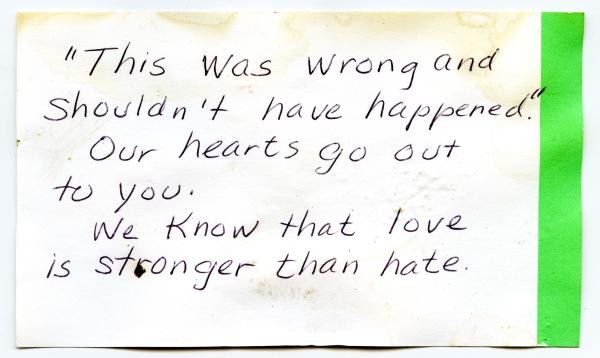 "This was wrong and
shouldn't have happened."
Our hearts go out
to you.
We know that love
is stronger than hate.